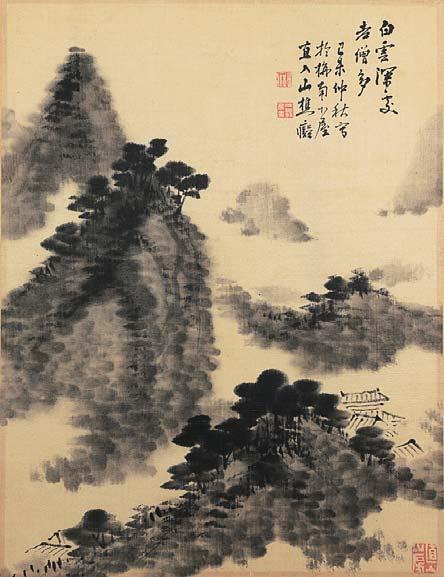 白雲深處
老僧多
己未仲秋寫
於梅南小廬
直入山樵癡